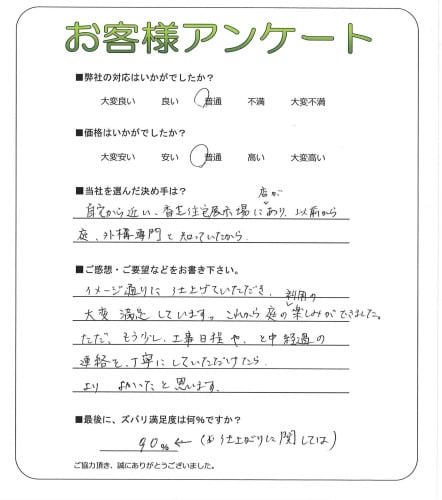 お客様アンケート
■弊社の対応はいかがでしたか?
大変良い 良い 普通 不満 大変不満
■価格はいかがでしたか?
大変安い 安い 普通 高い 大変高い
■当社を選んだ決め手は?
店が
自宅から近い、香芝住宅展示場にあり、以前から
庭、外構専門と知っていたから。
■ご感想・ご要望などをお書き下さい。
イメージ通りに仕上げていただき、
利用の
大変満足しています。これから庭の楽しみができました。
ただ、もう少し、工事日程や、と中経過の
連絡を、丁寧にしていただけたら
より よかったと思います。
■最後に、ズバリ満足度は何%ですか?
90% ← (お仕上がりに関しては)
ご協力頂き、誠にありがとうございました。